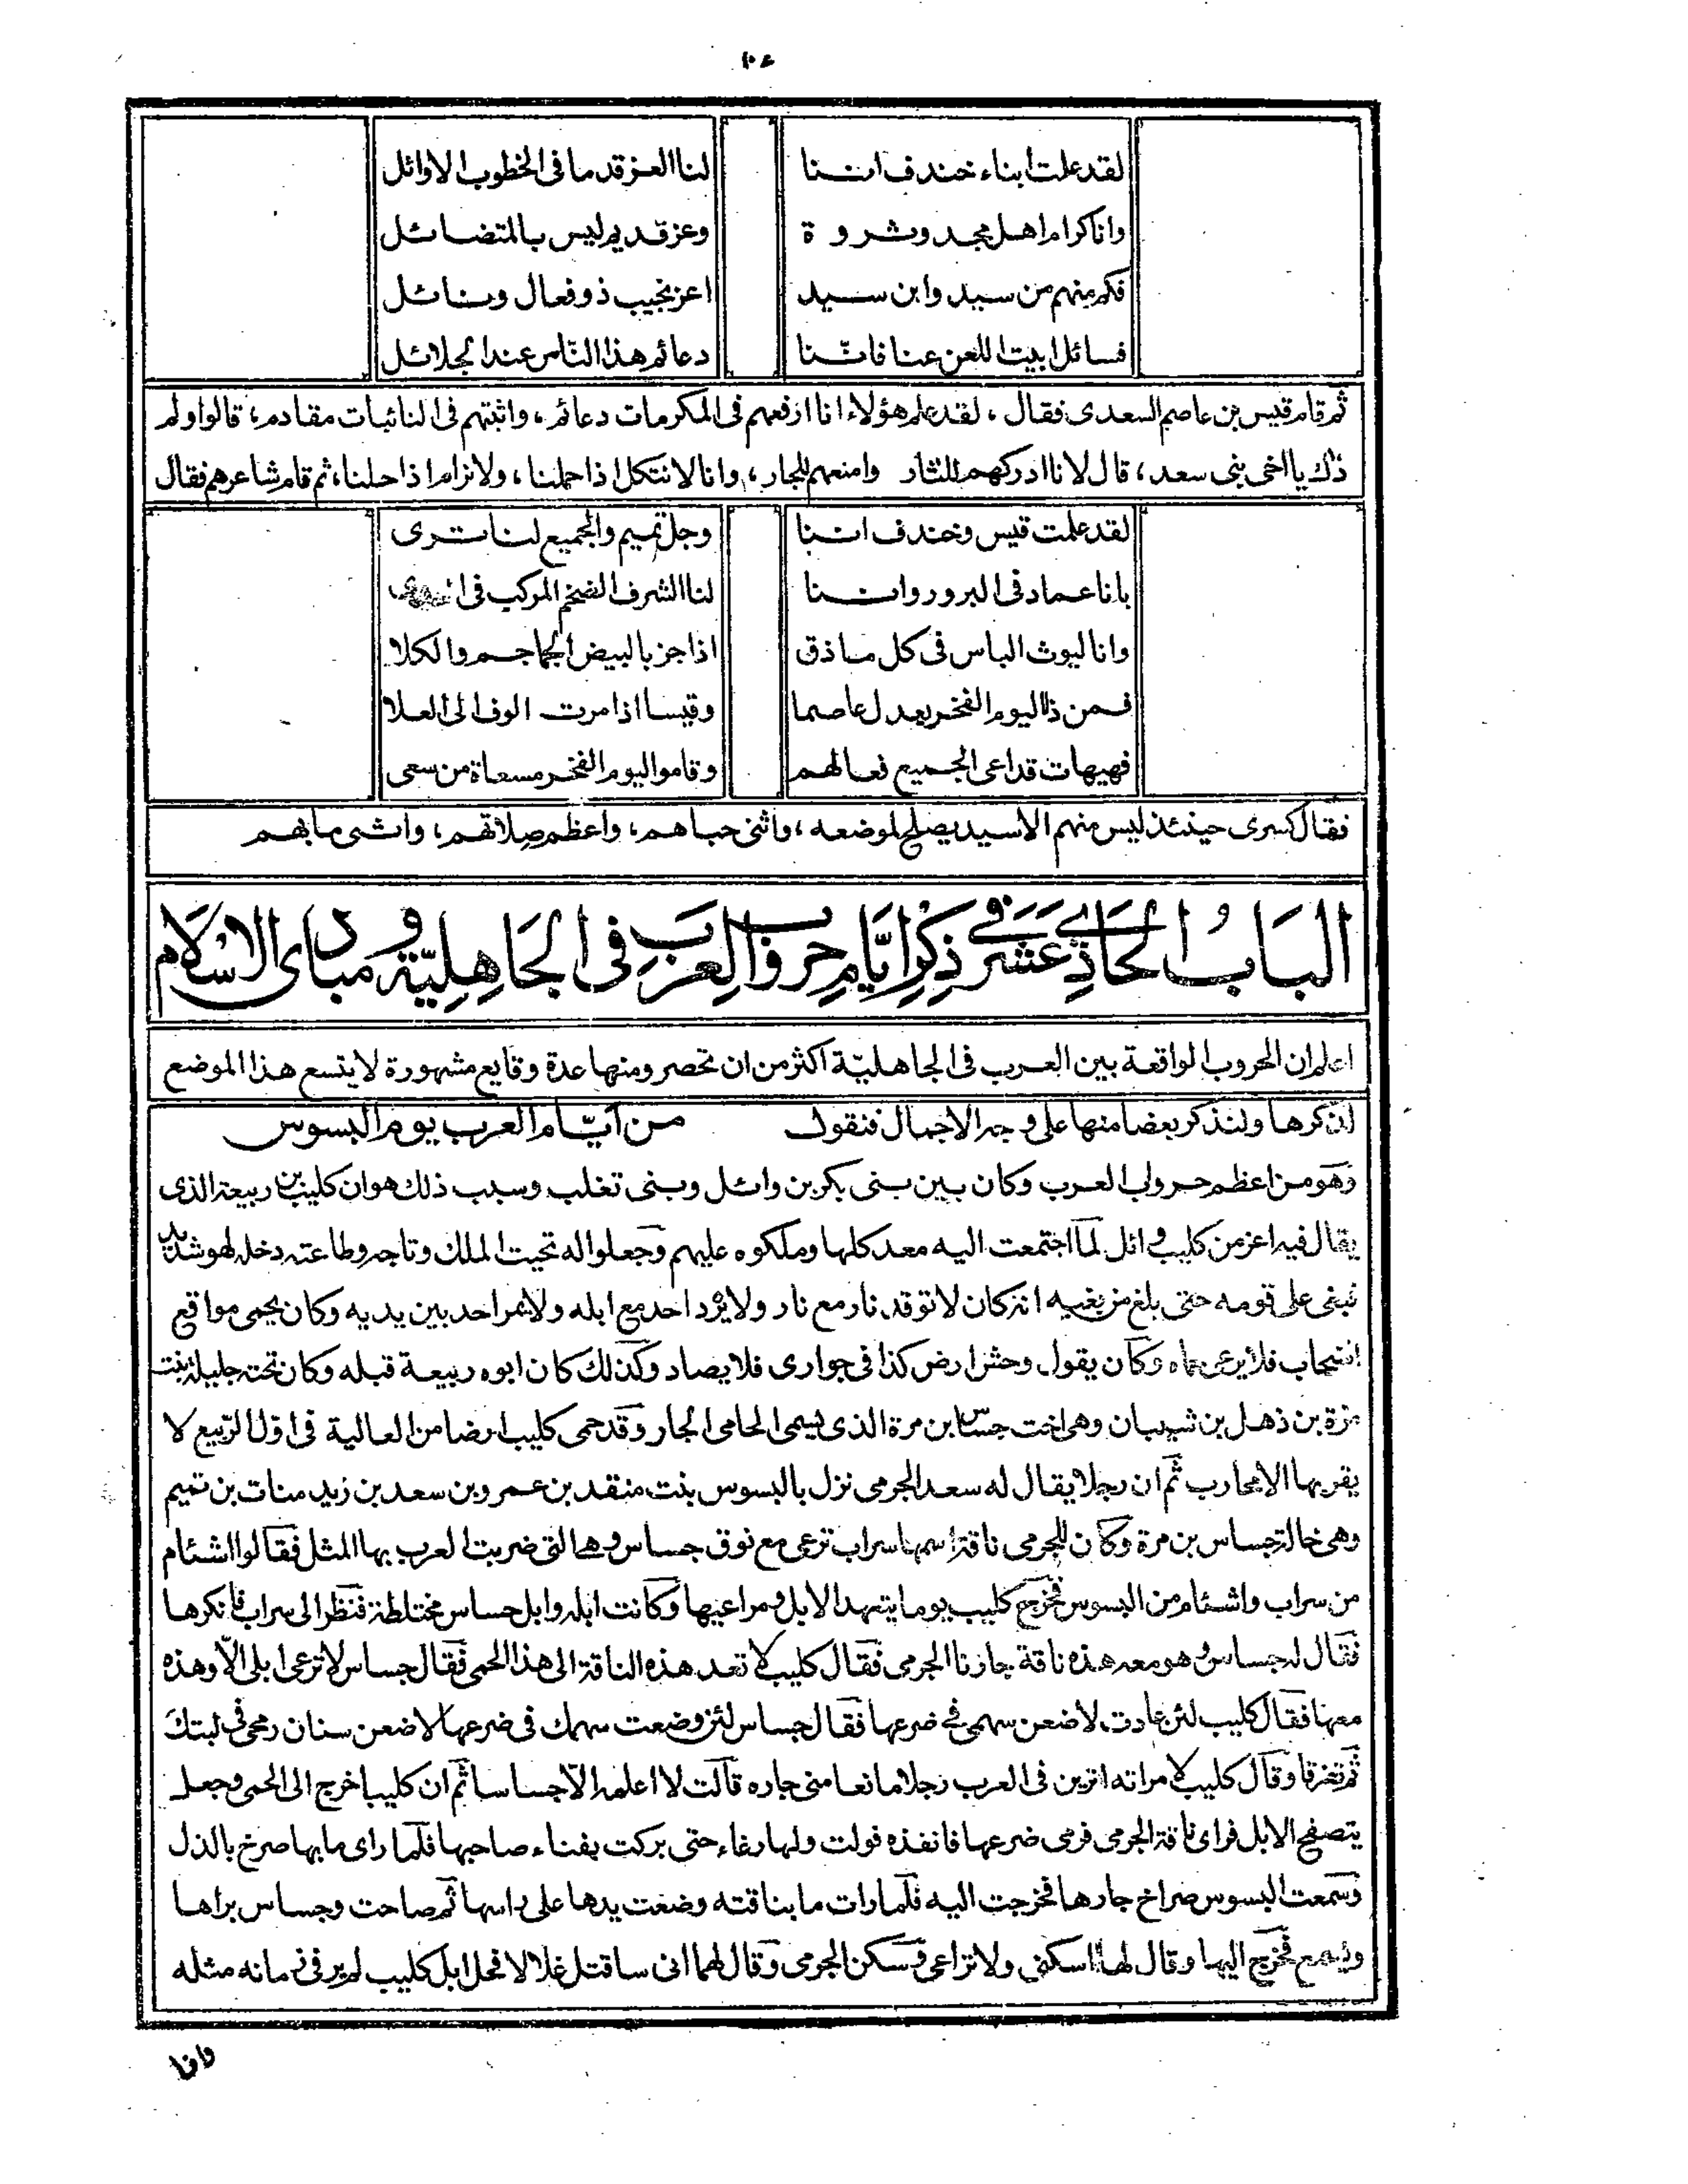 لقد علمت ابناء خندف اننا لنا العز قدما فى الخطوب الاوائل
وانا كرام اهل مجد وثروة وعز قديم ليس بالمتضائل
فكم منهم من سيد وابن سيد اعز نجيب ذو فعال ونائل
فسائل ابيت اللعن عنا فاننا دعائم هذا الناس عند الجلائل
ثم قام قيس بن عاصم السعدى فقال ، لقد علم هؤلاء انا ارفعهم فى المكرمات دعائم ، واثبتهم فى النائبات مقادم ، قالوا ولم
ذاك يا اخى بنى سعد ، قال لانا ادركهم للثار وامنعهم للجار ، وانا لا نتكل اذا حملنا ، ولا نرام اذا حللنا ، ثم قام شاعرهم فقال
لقد علمت قيس وخندف اننا وجل تميم والجميع لنا ترى
بانا عماد فى البرور واننا لنا الشرف الضخم المركب فى
وانا ليوث الباس فى كل ماذق اذا جز بالبيض الجماجم والكلا
فمن ذا ليوم الفخر يعدل عاصما وقيسا اذا مرت الوف الى العلا
فهيهات قد اعى الجميع فعالهم وقاموا ليوم الفخر مسعاة من سعى
فقال كسرى حينئذ ليس منهم الا سيد يصلح لموضعه ، واثنى حباهم ، واعظم صلاتهم ، واثنى مابهم
البَابُ الحَادِى عَشَر فى ذِكْرِ ايَّامِ حروب العَرَبِ فى الجَاهِلِيّة ومبادى الاسْلَام
اعلم ان الحروب الواقعة بين العرب فى الجاهليّة اكثر من ان تحصر ومنها عدة وقايع مشهورة لا يتسع هذا الموضع
لذكرها ولنذكر بعضا منها على وجه الاجمال فنقول من ايّام العرب يوم البسوس
وهو من اعظم حروب العرب وكان بين بنى بكر بن وائل وبنى تغلب وسبب ذلك هو ان كليب بن ربيعة الذى
يقال فيه اعز من كليب وائل لمّا اجتمعت اليه معد كلها وملكوه عليهم وجعلوا له تحيت الملك وتاجه وطاعته دخله لهو شديد
فبغى على قومه حتى بلغ من بغيه انه كان لا توقد نار مع نار ولا يرد احد مع ابله ولا يمر احد بين يديه وكان يحمى مواقع
السحاب فلا يرعى حماه وكان يقول وحش ارض كذا فى جوارى فلا يصاد وكذلك كان ابوه ربيعة قبله وكان تحته جليلة بنت
مرة بن ذهل بن شيبان وهى اخت جسّاس بن مرة الذى يسمى الحامى الجار وقد حمى كليب ارضا من العالية فى اوّل الرّبيع لا
يقربها الا محارب ثم ان رجلا يقال له سعد الجرمى نزل بالبسوس بنت منقد بن عمرو بن سعد بن زيد منات بن تميم
وهى خالة جساس بن مرة وكان للجرمى ناقة اسمها سراب ترعى مع نوق جساس وهى التى ضربت العرب بها المثل فقالوا اشئام
من سراب واشئام من البسوس فخرج كليب يوما يتعهد الابل ومراعيها وكانت ابله وابل جساس مختلطة فنظر الى سراب فانكرها
فقال له جساس وهو معه هذه ناقة جارنا الجرمى فقال كليب لا تعد هذه الناقة الى هذا الحمى فقال جساس لا ترعى ابلى الّا وهذه
معها فقال كليب لئن عادت لاضعن سهمى فى ضرعها فقال جساس لئن وضعت سهمك فى ضرعها لاضعن سنان رمحى فى لبتك
ثم تفرقا وقال كليب لامراته اترين فى العرب رجلا مانعا منى جاره قالت لا اعلمه الّا جساسا ثم ان كليبا خرج الى الحمى وجعل
يتصفح الابل فراى ناقة الجرمى فرمى ضرعها فانفذه فولت ولها رغاء حتى بركت بفناء صاحبها فلما راى ما بها صرخ بالذل
وسمعت البسوس صراخ جارها فخرجت اليه فلما رات ما بناقته وضعت يدها على راسها ثم صاحت وجساس يراها
ويسمع فخرج اليها وقال لها اسكتى ولا تراعى وسكن الجرمى وقال لهما انى ساقتل غلالا فحل ابل كليب لم ير فى زمانه مثله
وانا